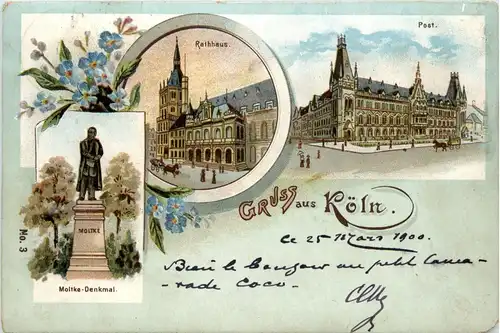 Rathhaus.
Post.
MOLTKE
Moltke-Denkmal.
No. 3
Gruss aus Köln.
Le 25 Mars 1900.
Bien le bonjour au petit cama-
rade Coco.